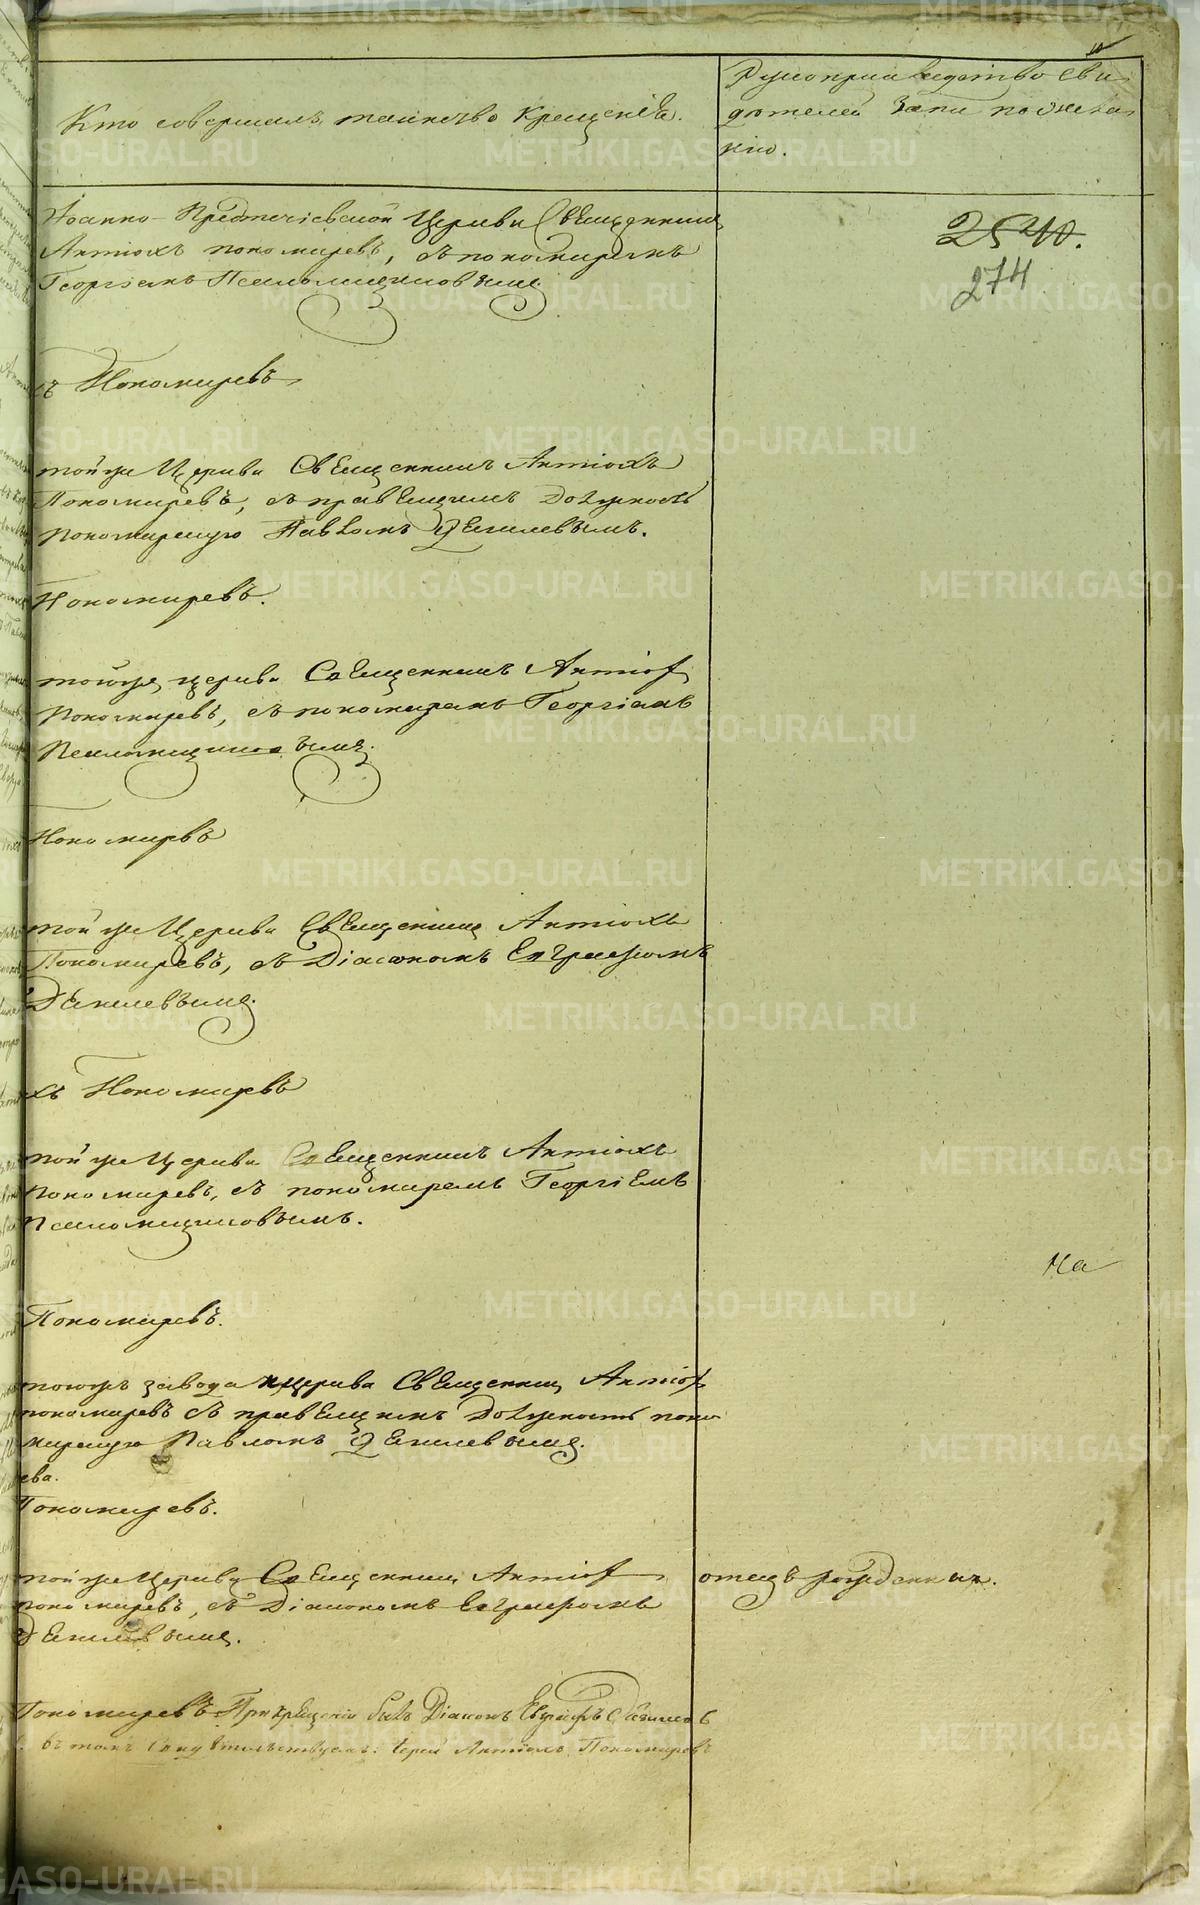 Кто совершалъ таинство крещенія.
Рукоприкладство сви
дѣтелей записи по жела
нію.
Іоанно-Предтечіевской Церкви Священникъ
Антіохъ Пономаревъ, съ пономаремъ
Георгіемъ Псаломщиковымъ
2540.
274
ъ Пономаревъ
той же Церкви Священникъ Антіохъ
Пономаревъ, съ правящимъ должность
пономарскую Павломъ
Пономаревъ.
той же церкви Священникъ Антіох
Пономаревъ, съ пономаремъ Георгіемъ
Псаломщиковымъ.
Пономаревъ
той же Церкви Священникъ Антіохъ
Пономаревъ, съ Діакономъ Евграфомъ
хъ Пономаревъ
той же Церкви Священникъ Антіохъ
Пономаревъ, съ пономаремъ Георгіемъ
Псаломщиковымъ.
На
Пономаревъ.
тогожъ завода церкви Священник Антіох
пономаревъ съ правящимъ должность поно
марскую Павломъ
ева.
Пономаревъ.
той же Церкви Священник Антіох
пономаревъ, съ Діакономъ Евграфомъ
отецъ
Пономаревъ При крещеніи былъ Діаконъ Евграфъ
въ томъ свидѣтельствуетъ: Іерей Антіохъ Пономаревъ